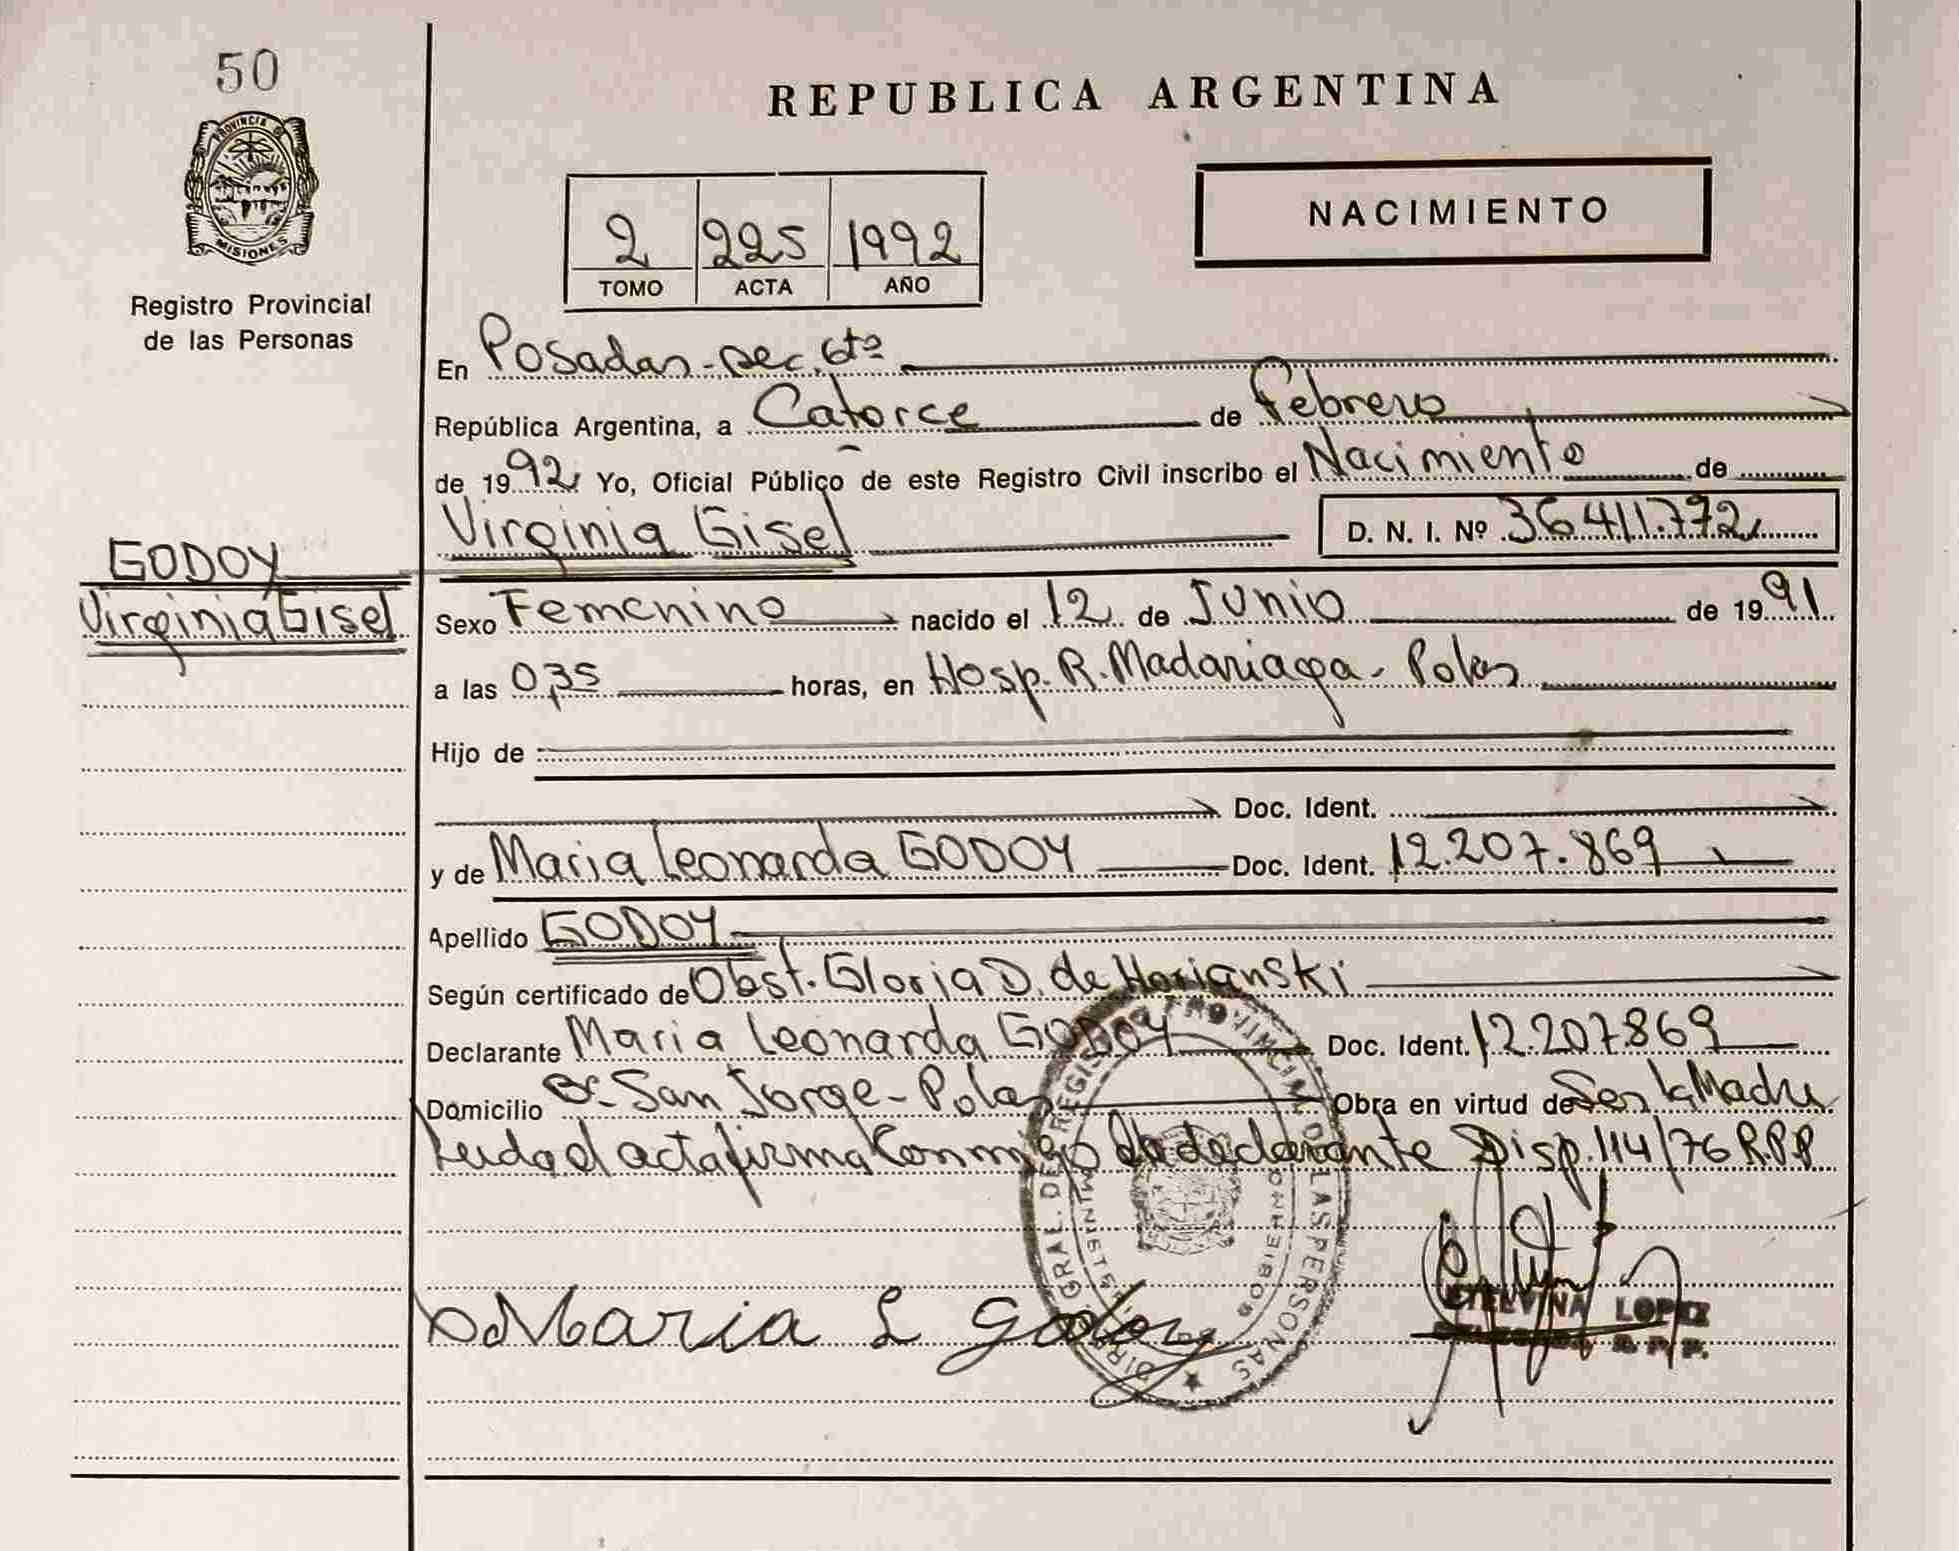 50
PROVINCIA DE
MISIONES
Registro Provincial
de las Personas
GODOY
Virginia Gisel
REPUBLICA ARGENTINA
2 225 1992
TOMO ACTA AÑO
NACIMIENTO
En Posadas - sec. 6ta
República Argentina, a Catorce de Febrero
de 1992 Yo, Oficial Público de este Registro Civil inscribo el Nacimiento de
Virginia Gisel D. N. I. Nº 36.411.772
Sexo Femenino nacido el 12 de Junio de 1991
a las 0,35 horas, en Hosp. R. Madariaga - Pdas
Hijo de
Doc. Ident.
y de Maria Leonarda GODOY Doc. Ident. 12.207.869
Apellido GODOY
Según certificado de Obst. Gloria D. de Horianski
Declarante Maria Leonarda GODOY Doc. Ident. 12.207.869
Domicilio Bº San Jorge - Pdas Obra en virtud de Ser la Madre
Leida el acta firma Conmigo la declarante Disp. 114/76 R.P.P
DIREC. GRAL. DEL REGISTRO PROVINCIAL DE LAS PERSONAS
Maria L Godoy
ETELVINA LOPEZ
R. P. P.